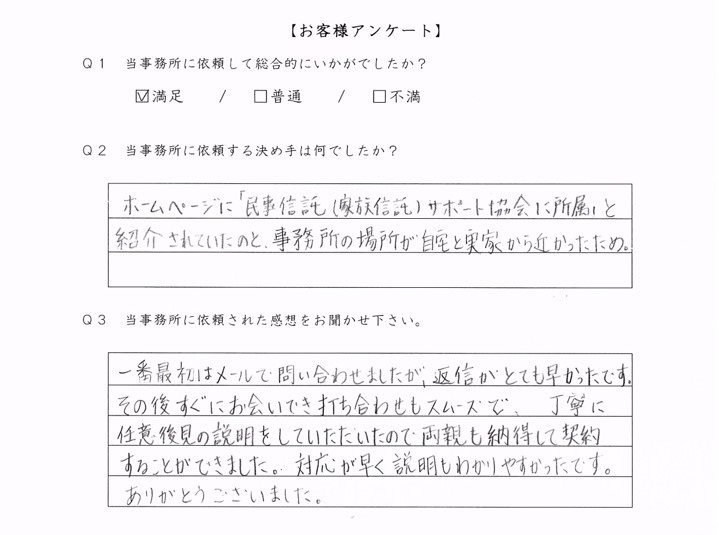 【お客様アンケート】
Q1 当事務所に依頼して総合的にいかがでしたか？
☑満足 / □普通 / □不満
Q2 当事務所に依頼する決め手は何でしたか？
ホームページに「民事信託(家族信託)サポート協会に所属」と
紹介されていたのと、事務所の場所が自宅と実家から近かったため。
Q3 当事務所に依頼された感想をお聞かせ下さい。
一番最初はメールで問い合わせましたが、返信がとても早かったです。
その後すぐにお会いでき打ち合わせもスムーズで、丁寧に
任意後見の説明をしていただいたので両親も納得して契約
することができました。対応が早く説明もわかりやすかったです。
ありがとうございました。